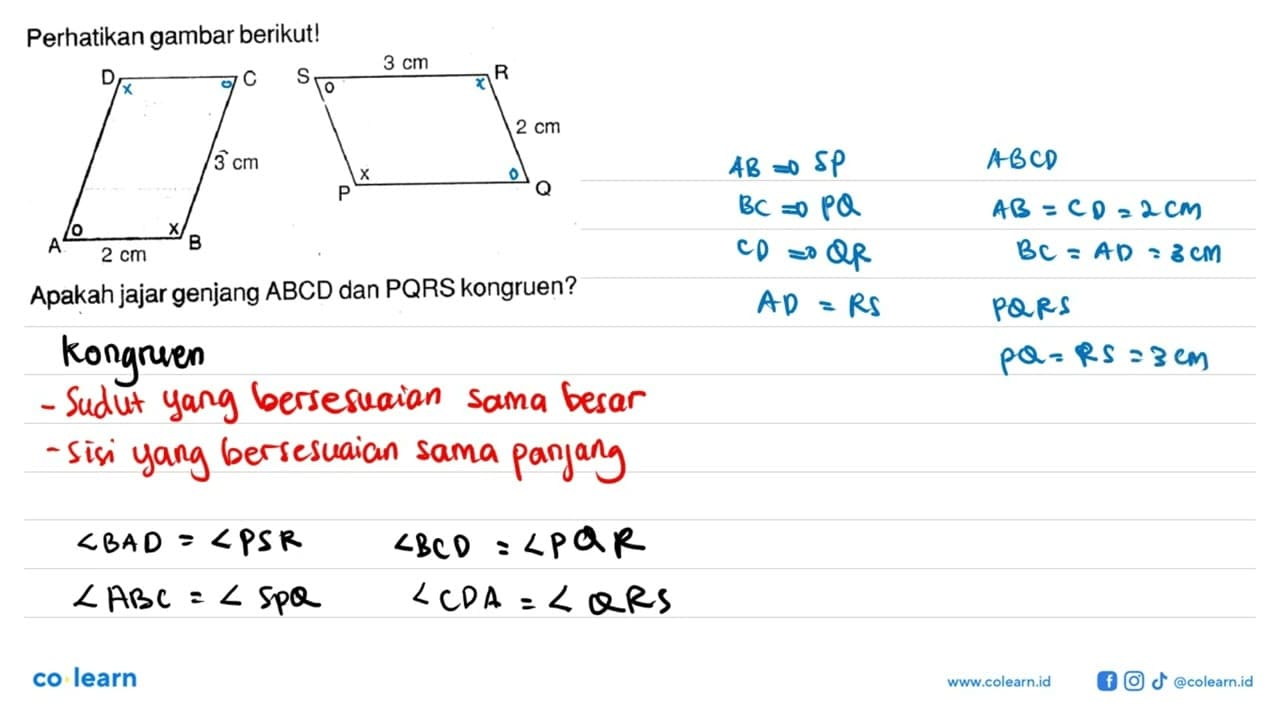 Perhatikan gambar berikut!
D x o C S o 3 cm x R
3 cm 2 cm
A o x B P x o Q
2 cm
Apakah jajar genjang ABCD dan PQRS kongruen?
kongruen
- Sudut yang bersesuaian sama besar
- Sisi yang bersesuaian sama panjang
∠BAD = ∠PSR ∠BCD = ∠PQR
∠ABC = ∠SPQ ∠CDA = ∠QRS
AB => SP
BC => PQ
CD => QR
AD = RS
ABCD
AB = CD = 2 CM
BC = AD = 3 CM
PQRS
PQ = RS = 3 cm
co learn
www.colearn.id
@colearn.id